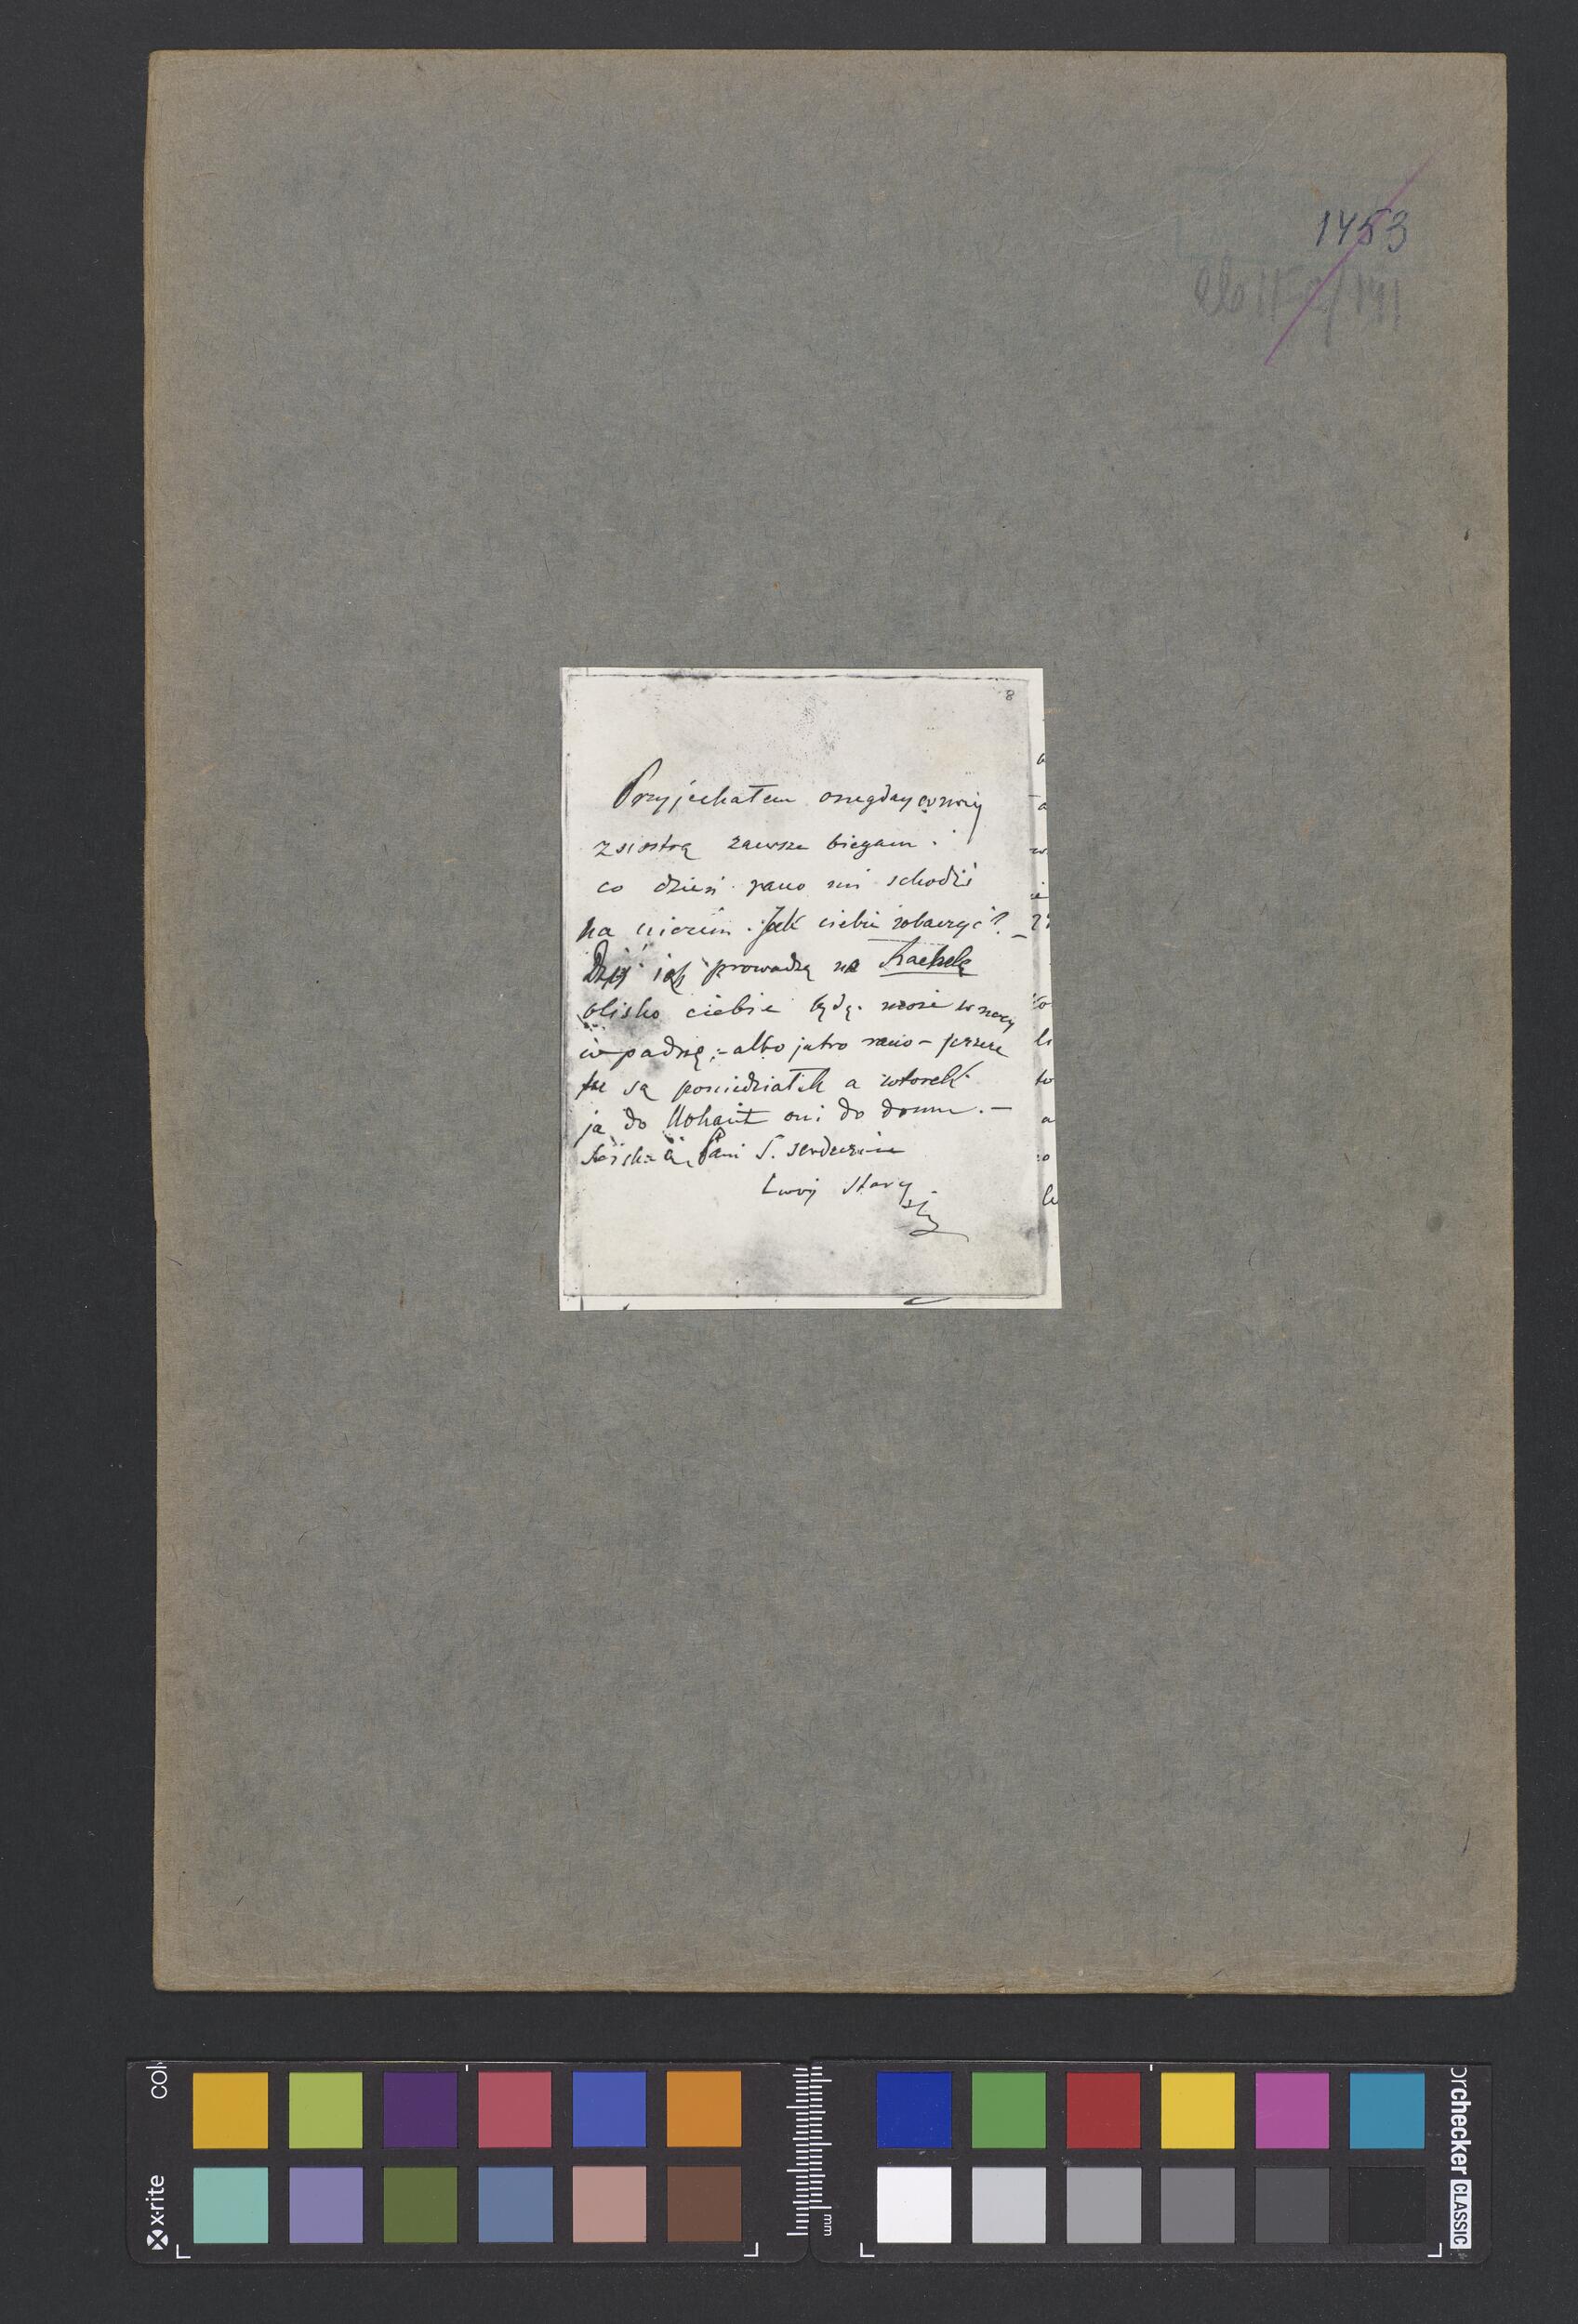 1453
8
Przyjechałem onegday w nocy
z siostrą zawsze biegam.
co dzień rano mi schodzi
na niczem. Jak ciebie zobaczyć? –
Dziś ich prowadzę na Rachelę
blisko ciebie będę. może w nocy
wpadnę; – albo jutro rano – przez
są poniedziałek a wtorek
ja do Nohant oni do domu. –
Pani S. serdecznie
twój stary
x-rite
mm
checker CLASSIC